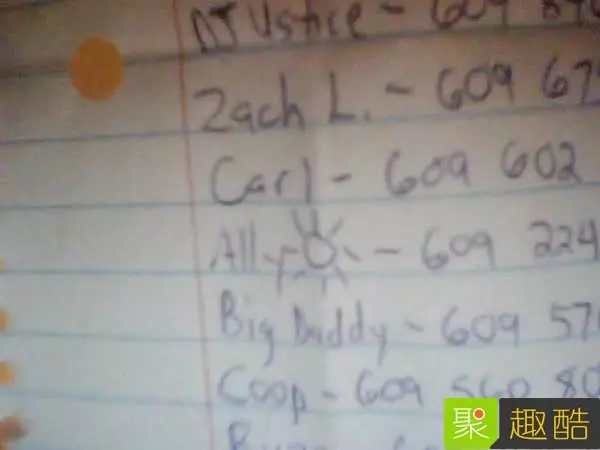 Zach L. - 609 67
Carl - 609 602
Ally - 609 224
Big Daddy - 609 57
Coop - 609 560 80
聚 趣酷